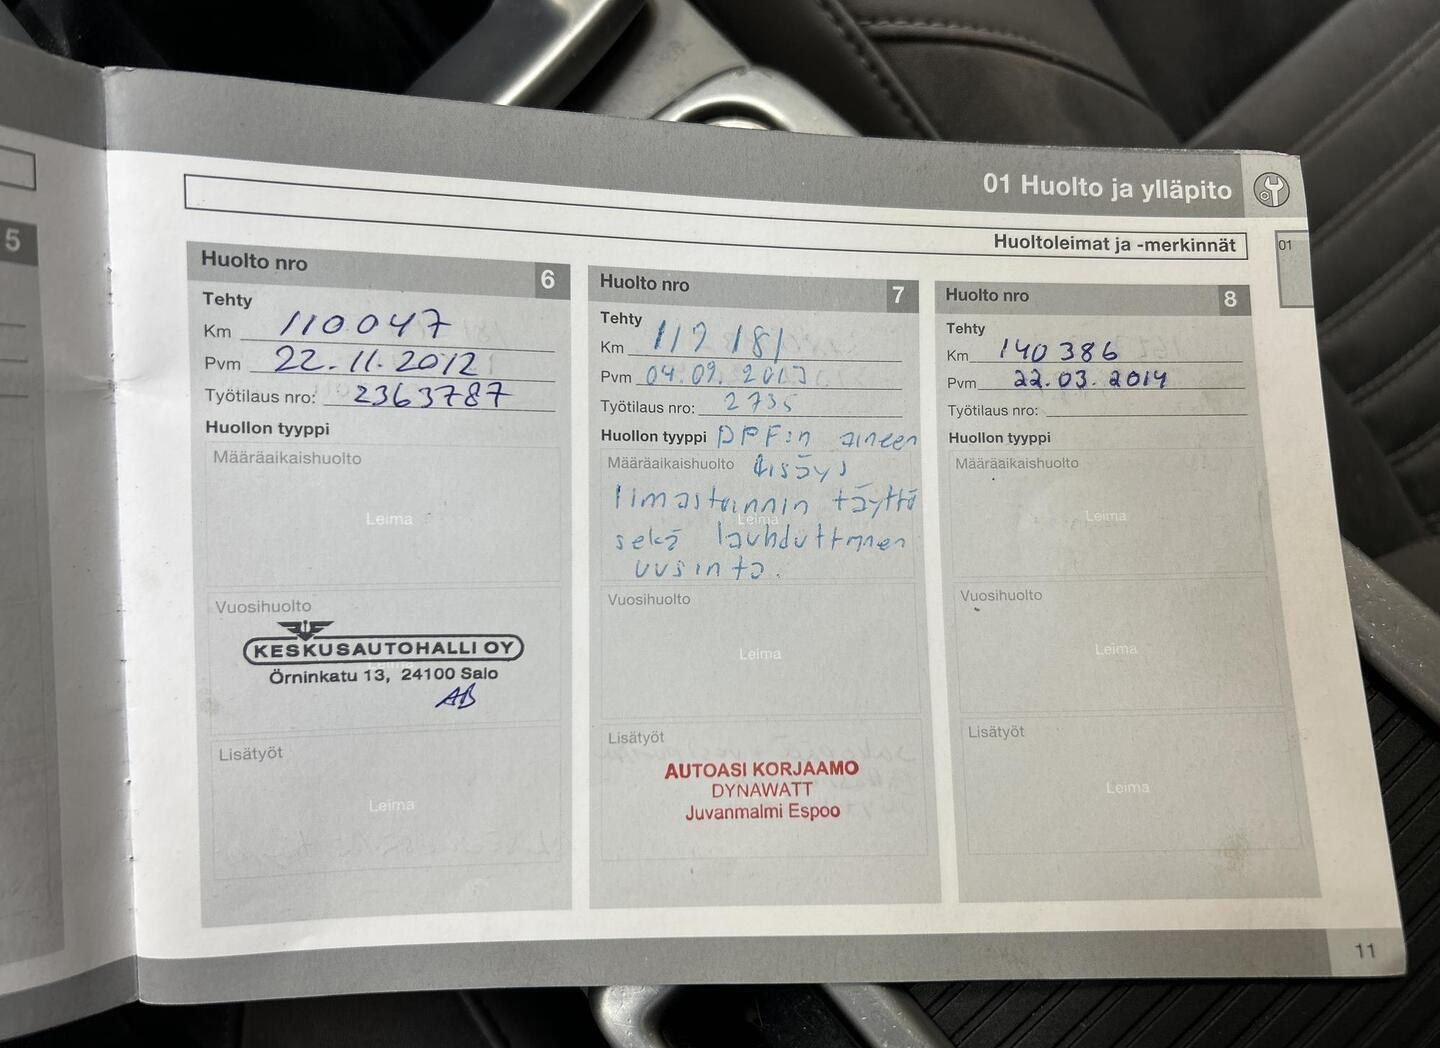 5
01 Huolto ja ylläpito
Huoltoleimat ja -merkinnät
01
Huolto nro 6
Tehty
Km 110047
Pvm 22.11.2012
Työtilaus nro: 2363787
Huollon tyyppi
Määräaikaishuolto
Leima
Vuosihuolto
Leima
KESKUSAUTOHALLI OY
Örninkatu 13, 24100 Salo
AB
Lisätyöt
Leima
Huolto nro 7
Tehty
Km
Pvm 04.09.2013
Työtilaus nro: 2735
Huollon tyyppi DPF:n aineen
Määräaikaishuolto lisäys
Ilmastoinnin täyttö
Leima
sekä lauhduttimen
uusinta.
Vuosihuolto
Leima
Lisätyöt
AUTOASI KORJAAMO
DYNAWATT
Juvanmalmi Espoo
Huolto nro 8
Tehty
Km 140386
Pvm 22.03.2014
Työtilaus nro:
Huollon tyyppi
Määräaikaishuolto
Leima
Vuosihuolto
Leima
Lisätyöt
Leima
11